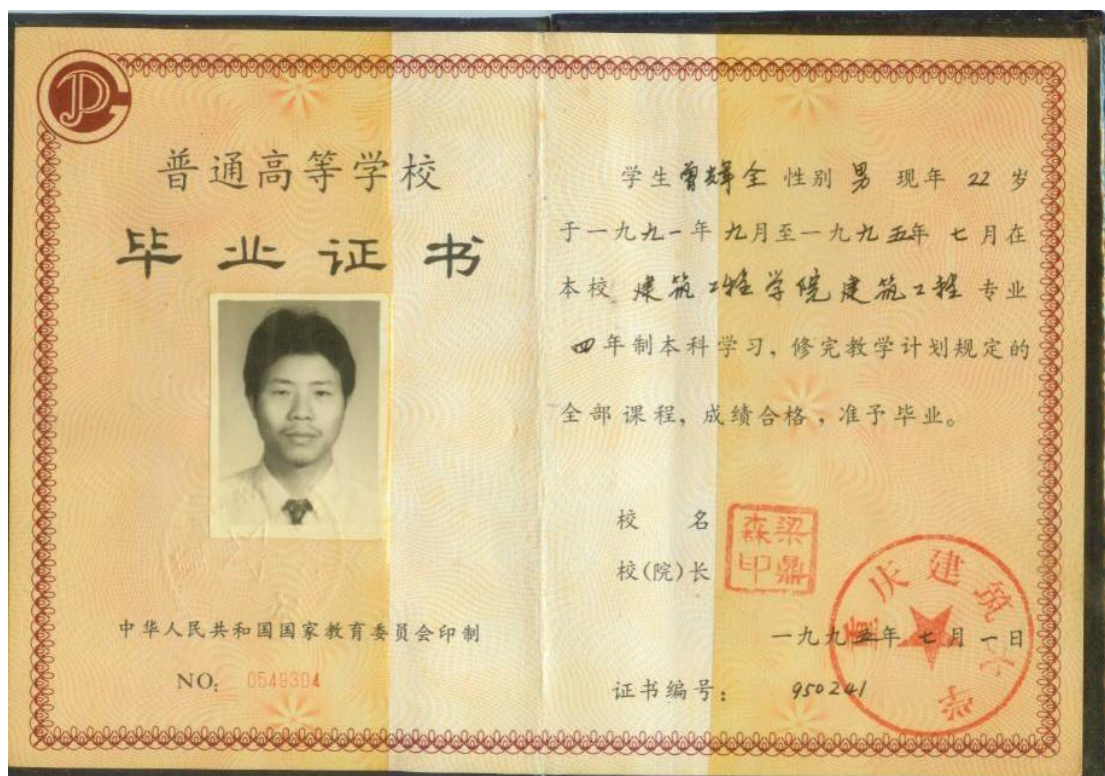 普通高等学校
毕业证书
中华人民共和国国家教育委员会印制
NO: 0549304
学生曾辉全 性别 男 现年 22 岁
于一九九一年 九月至一九九五年 七月在
本校 建筑工程学院建筑工程 专业
四年制本科学习，修完教学计划规定的
全部课程，成绩合格，准予毕业。
校 名
校(院)长
梁鼎森印
重庆建筑大学
一九九五年 七月 一日
证书编号： 950241